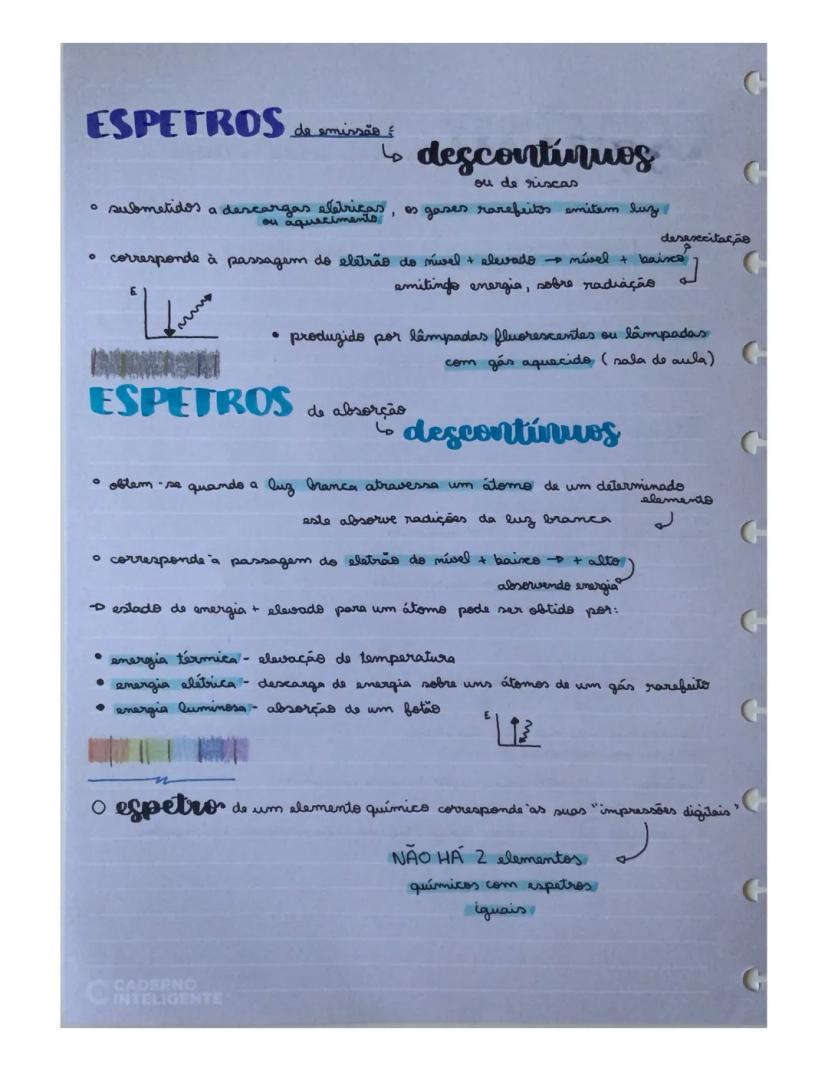 ESPETROS de emissão E
↳ descontínuos
ou de riscas
• submetidos a descargas elétricas, os gases rarefeitos emitem luz
ou aquecimento
desexcitação
• corresponde à passagem do eletrão do nível + elevado → nível + baixo
emitindo energia, sobre radiação
E
• produzido por lâmpadas fluorescentes ou lâmpadas
com gás aquecido (sala de aula)
ESPETROS de absorção
↳ descontínuos
• obtem-se quando a luz branca atravessa um átomo de um determinado
elemento
este absorve radições da luz branca
• corresponde à passagem do eletrão do nível + baixo → + alto
absorvendo energia
→ estado de energia + elevado para um átomo pode ser obtido por:
• energia térmica - elevação de temperatura
• energia elétrica - descarga de energia sobre uns átomos de um gás rarefeito
• energia luminosa - absorção de um fotão
E
O espetro de um elemento químico corresponde às suas "impressões digitais"
NÃO HÁ 2 elementos
químicos com espetros
iguais
CADERNO
INTELIGENTE